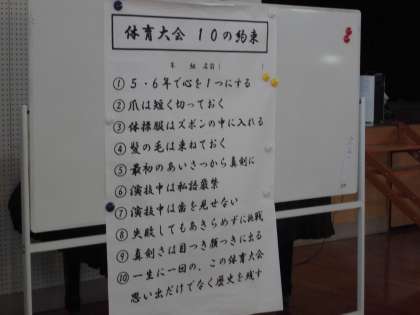 体育大会 10の約束
年 組 名前( )
① 5・6年で心を1つにする
② 爪は短く切っておく
③ 体操服はズボンの中に入れる
④ 髪の毛は束ねておく
⑤ 最初のあいさつから真剣に
⑥ 演技中は私語厳禁
⑦ 演技中は歯を見せない
⑧ 失敗してもあきらめずに挑戦
⑨ 真剣さは目つき顔つきに出る
⑩ 一生に一回の、この体育大会
思い出だけでなく歴史を残す